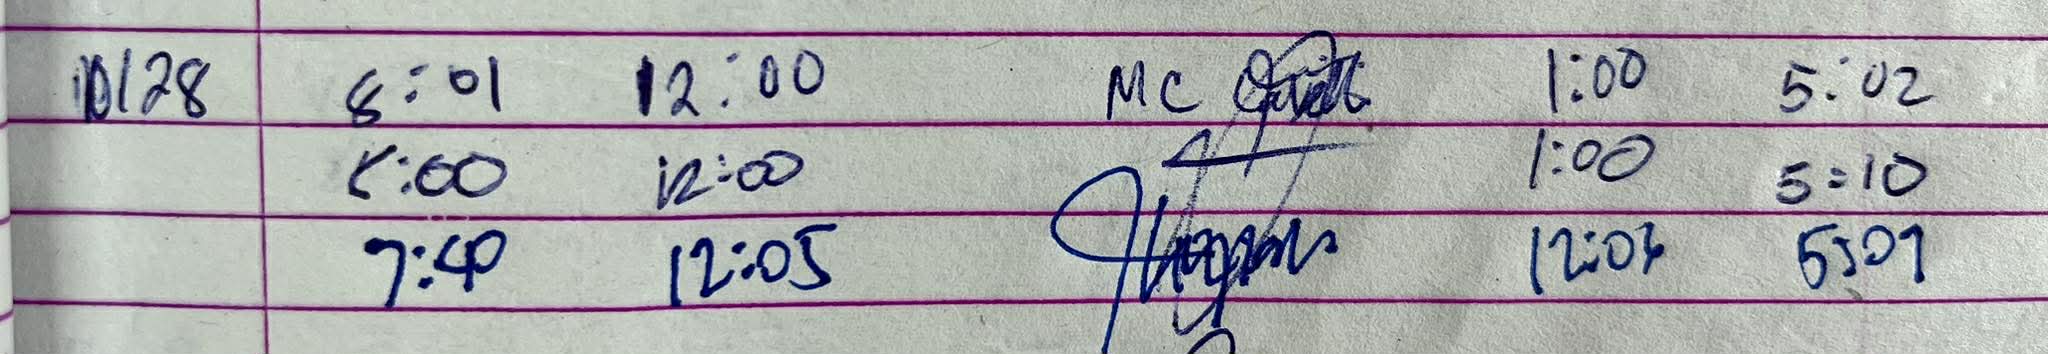 10/28 8:01 12:00 MC 1:00 5:02
8:00 12:00 1:00 5:10
7:40 12:05 5:09